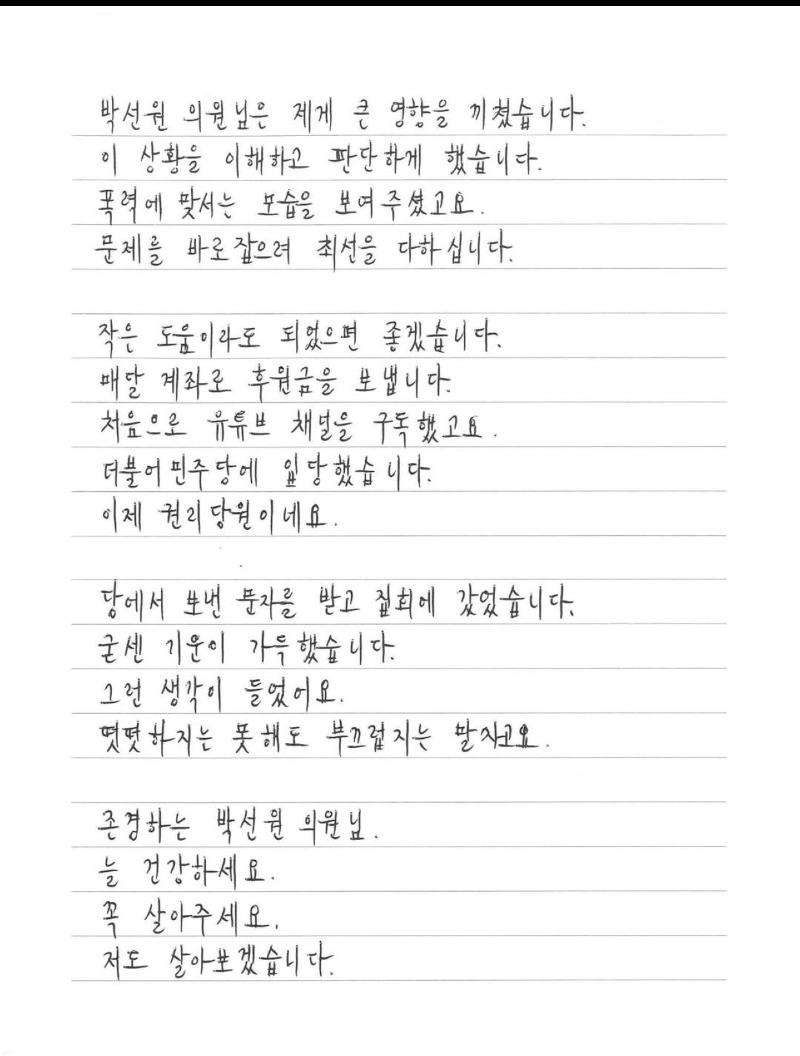 박선원 의원님은 제게 큰 영향을 끼쳤습니다.
이 상황을 이해하고 판단하게 했습니다.
폭력에 맞서는 모습을 보여주셨고요.
문제를 바로잡으려 최선을 다하십니다.
작은 도움이라도 되었으면 좋겠습니다.
매달 계좌로 후원금을 보냅니다.
처음으로 유튜브 채널을 구독했고요.
더불어민주당에 입당했습니다.
이제 권리당원이네요.
당에서 보낸 문자를 받고 집회에 갔었습니다.
굳센 기운이 가득했습니다.
그런 생각이 들었어요.
떳떳하지는 못해도 부끄럽지는 말자고요.
존경하는 박선원 의원님.
늘 건강하세요.
꼭 살아주세요.
저도 살아보겠습니다.